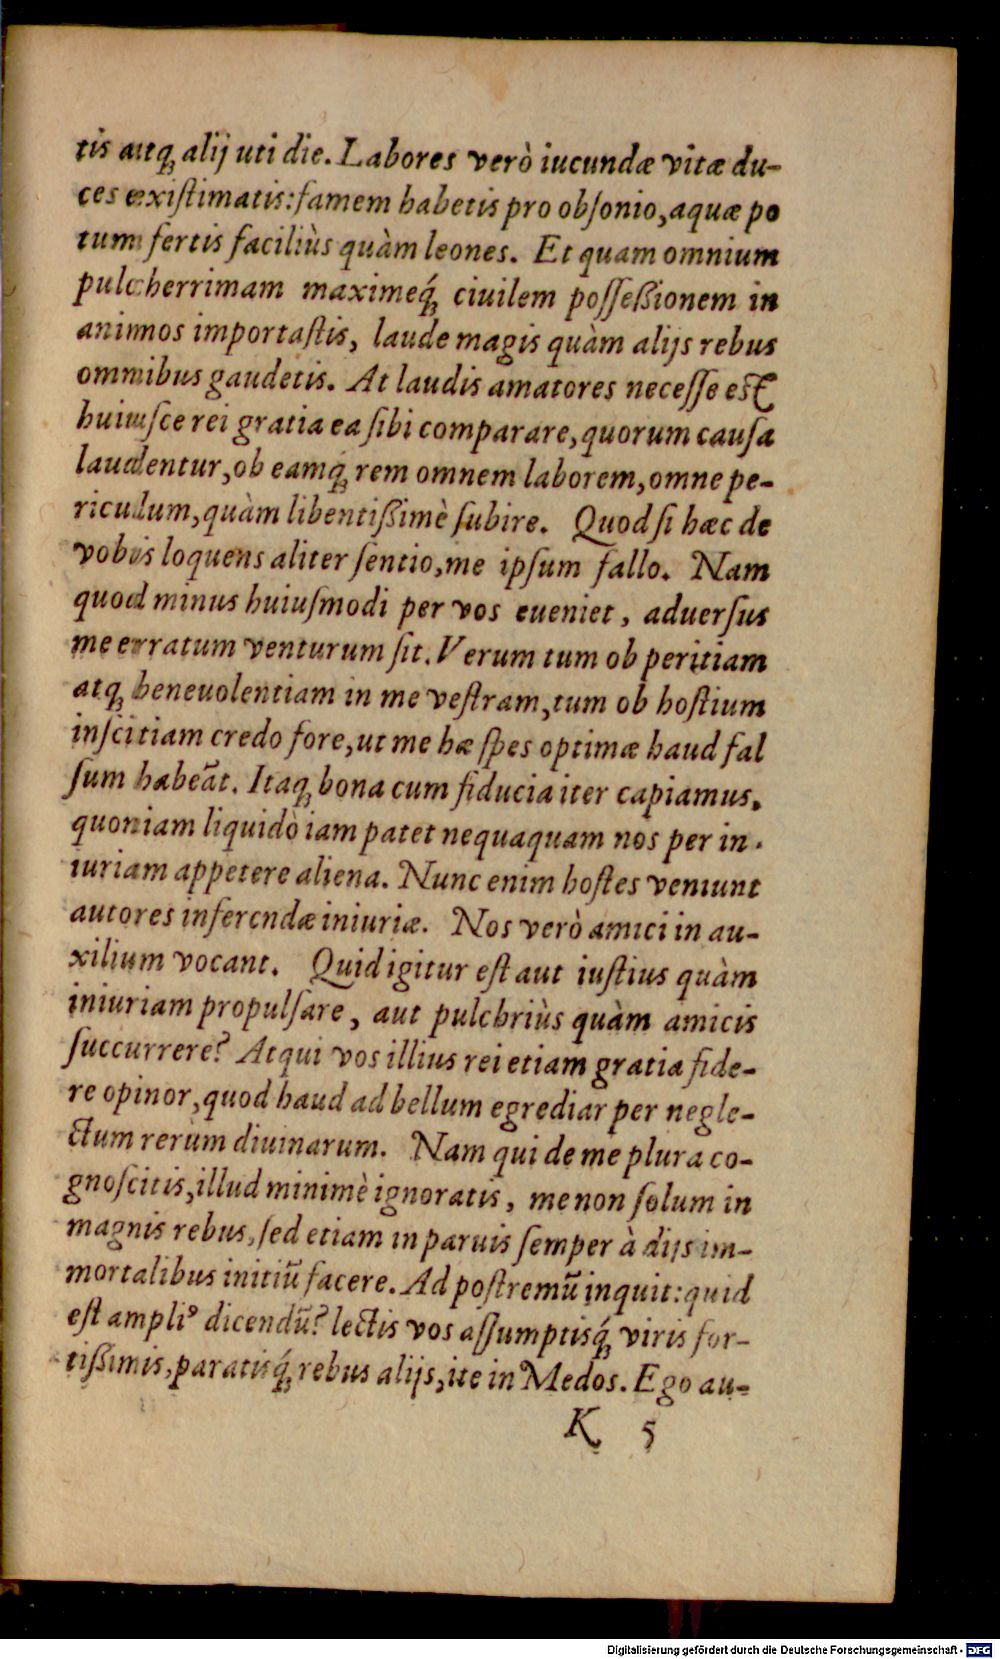 tis atq; alij uti die. Labores verò iucundæ vitæ du-
ces existimatis: famem habetis pro obsonio, aquæ po
tum fertis faciliùs quàm leones. Et quam omnium
pulcherrimam maximeq́; ciuilem possessionem in
animos importastis, laude magis quàm alijs rebus
omnibus gaudetis. At laudis amatores necesse est
huiusce rei gratia ea sibi comparare, quorum causa
laudentur, ob eamq́; rem omnem laborem, omne pe-
riculum, quàm libentissimè subire. Quod si hæc de
vobis loquens aliter sentio, me ipsum fallo. Nam
quod minus huiusmodi per vos eueniet, aduersus
me erratum venturum sit. Verum tum ob peritiam
atq; beneuolentiam in me vestram, tum ob hostium
inscitiam credo fore, ut me hæ spes optimæ haud fal
sum habeãt. Itaq; bona cum fiducia iter capiamus,
quoniam liquidò iam patet nequaquam nos per in-
iuriam appetere aliena. Nunc enim hostes veniunt
autores inferendæ iniuriæ. Nos verò amici in au-
xilium vocant. Quid igitur est aut iustius quàm
iniuriam propulsare, aut pulchriùs quàm amicis
succurrere? Atqui vos illius rei etiam gratia fide-
re opinor, quod haud ad bellum egrediar per negle-
ctum rerum diuinarum. Nam qui de me plura co-
gnoscitis, illud minimè ignoratis, me non solum in
magnis rebus, sed etiam in paruis semper à dijs im-
mortalibus initiũ facere. Ad postremũ inquit: quid
est ampliꝰ dicendũ? lectis vos assumptisq́; viris for-
tissimis, paratisq́; rebus alijs, ite in Medos. Ego au-
K 5
Digitalisierung gefördert durch die Deutsche Forschungsgemeinschaft - DFG